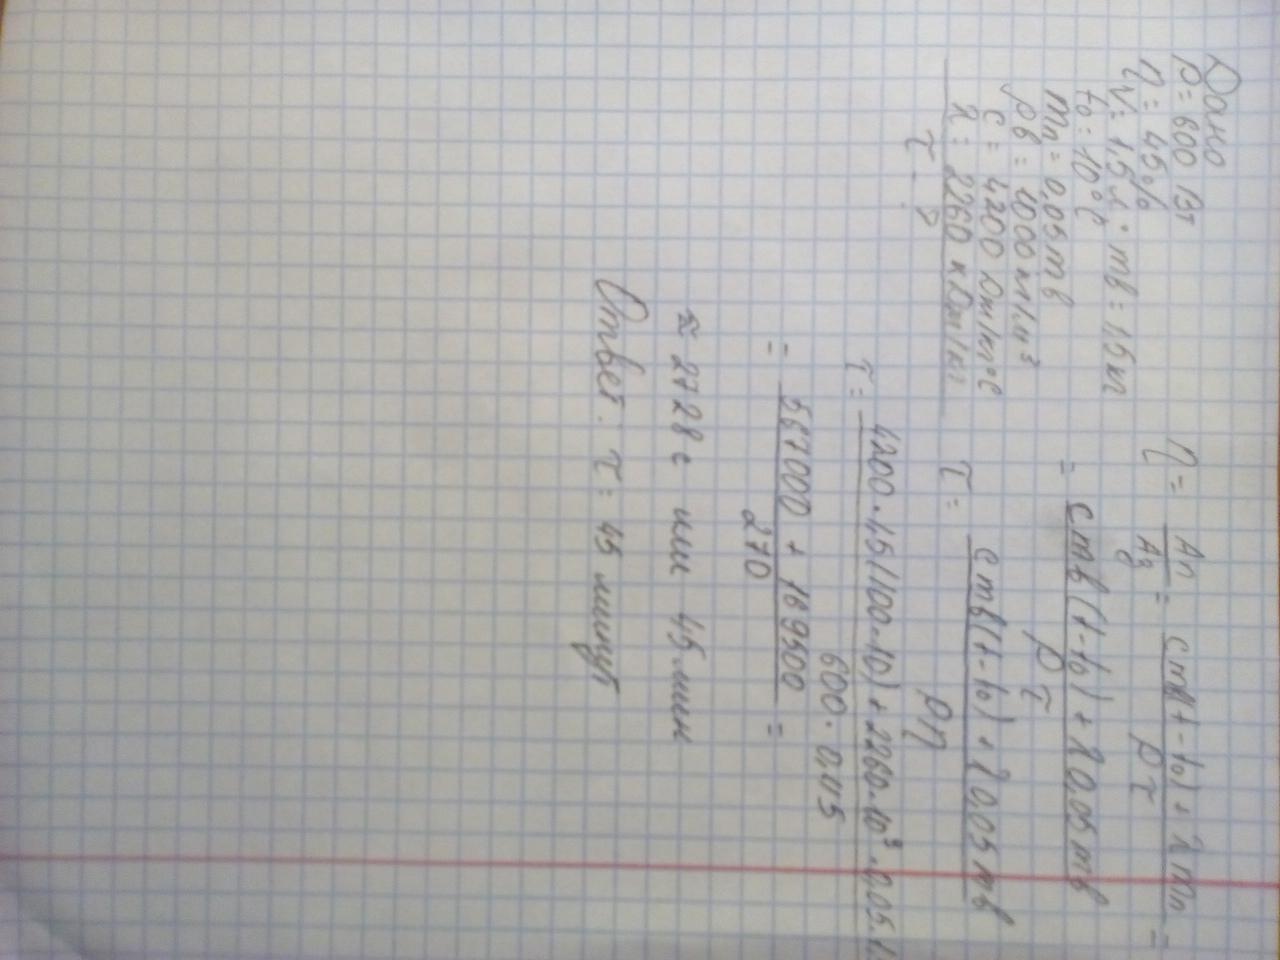 Дано
P = 600 Вт
η = 45%
V = 1,5 л • mв = 1,5 кг
t₀ = 10°C
mп = 0,05 mв
ρв = 1000 кг/м³
c = 4200 Дж/кг°C
λ = 2260 кДж/кг
τ - ?
η = Aп/Aз = cmв(t - t₀) + λ mп / Pτ =
= cmв(t - t₀) + λ 0,05 mв / Pτ
τ = cmв(t - t₀) + λ 0,05 mв / Pη
τ = 4200 · 1,5 (100 - 10) + 2260 · 10³ · 0,05 · 1. / 600 · 0,45
= 567000 + 169500 / 270 =
≈ 2728 с или 45 мин
Ответ: τ = 45 минут